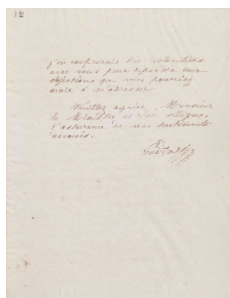 j'en conférerais très volontiers
avec vous pour répondre aux
objections que vous pourriez
avoir à m'adresser
Veuillez agréer, Monsieur
le Ministre et cher collègue,
l'assurance de mes sentiments
dévoués.